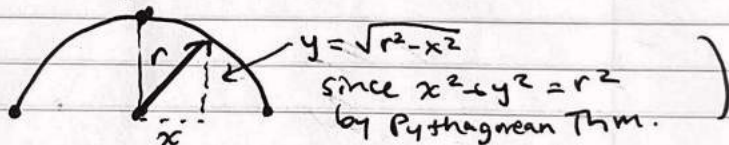 r
y = √(r² - x²)
since x² + y² = r²
by Pythagorean Thm.
x
)